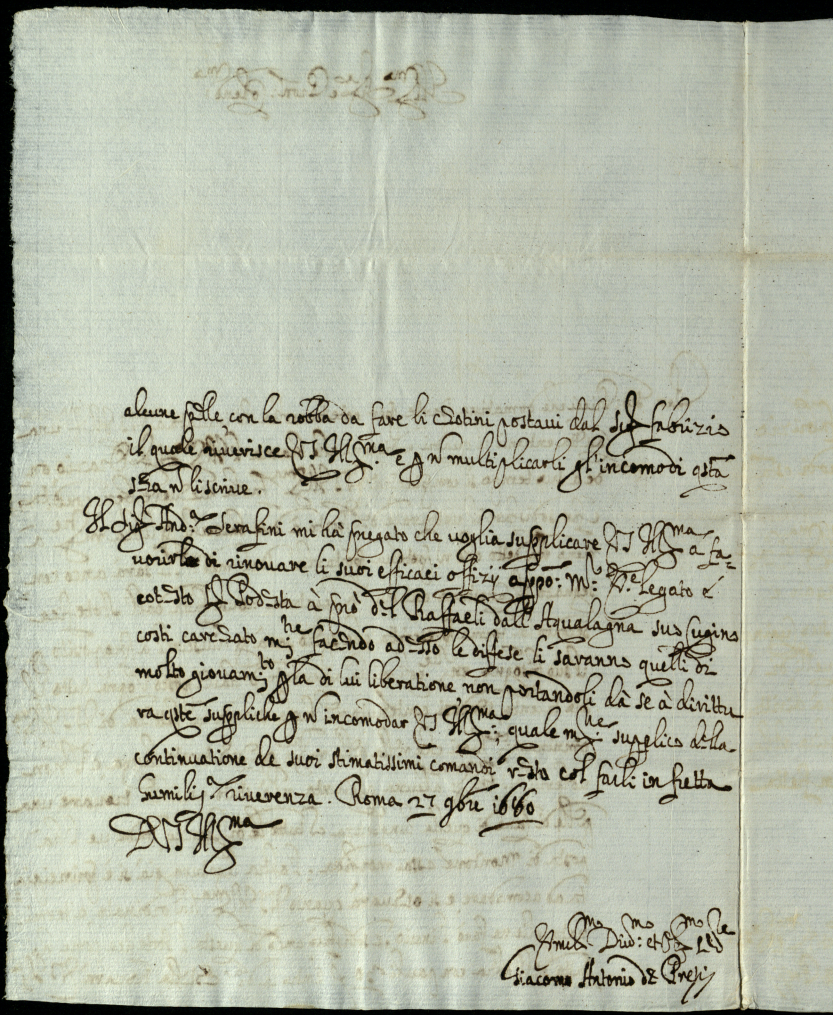 alcune palle con la robba da fare li crotini postavi dal Sig.r Fabrizio
il quale riverisce VS Ill.ma e p nõ multiplicarli gl'incomodi qsta
sera nõ li scrive.
Il Sig.r And.a Serafini mi hà pregato che voglia supplicare VS Ill.ma à fa=
vorirlo di rinovare li suoi efficaci offizy appo: M.r Legato é
cotesto Sr Podestà à prò del Raffaeli dall'Aqualagna suo Cugino
costi carcerato m.e facendo adesso le difese li saranno quelli di
molto giovam.to p la di lui liberatione non portandosi dà se à dirittu
ra qste suppliche p nõ incomodar VS Ill.ma; quale supplico della
continuatione de suoi stimatissimi comandi resto col farli in fretta
humiliss.a riverenza. Roma 27 9bre 1660
D VS Ill.ma
Humil.mo Div.mo et Ser.re
Giacomo Antonio de